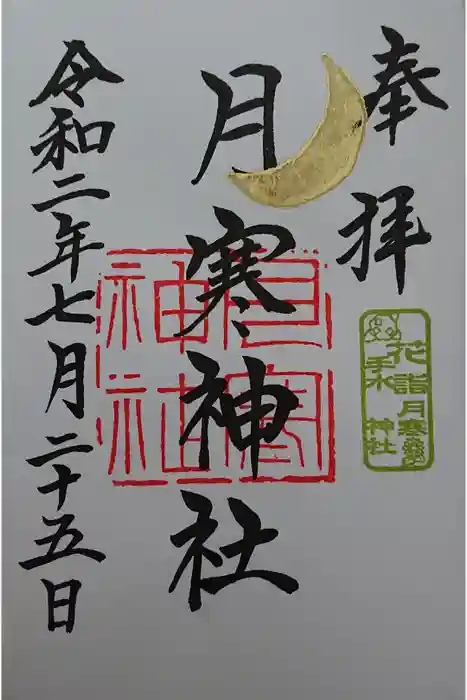 奉拝
花詣 月寒
花手水 神社
月寒神社
月寒神社
令和二年七月二十五日